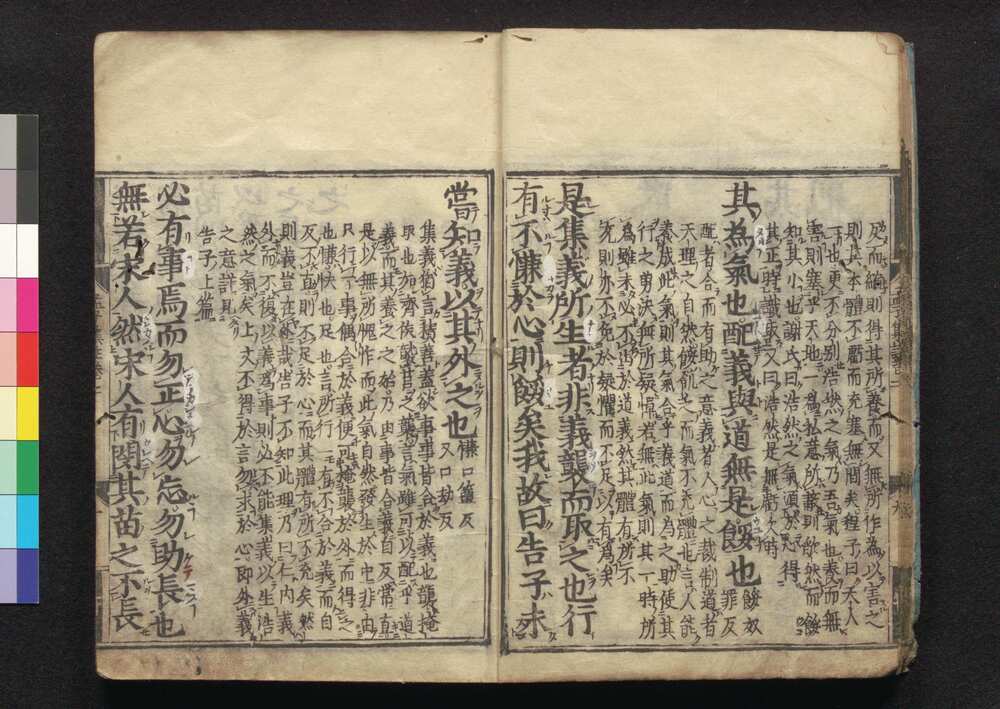 反而縮則得其所養而又無所作為以害之
則其本體不虧而充塞無間矣程子曰天人
一也更不分別浩然之氣乃吾氣也養而無
害則塞乎天地一為私意所蔽則欿然而餒
知其小也謝氏曰浩然之氣須於心得
其正時識取又曰浩然是無虧欠時
其為氣也配義與道無是餒也餒奴罪反
配者合而有助之意義者人心之裁制道者
天理之自然餒飢乏而氣不充體也言人能
養成此氣則其氣合乎義道而為之助使其
行之勇決無所疑憚若無此氣則其一時所
為雖未必不出於道義然其體有所不
充則亦不免於疑懼而不足以有為矣
是集義所生者非義襲而取之也行
有不慊於心則餒矣我故曰告子未
嘗知義以其外之也慊口簟反又口劫反
集義猶言積善蓋欲事事皆合於義也襲掩
取也如齊侯襲莒之襲言氣雖可以配乎道
義而其養之之始乃由事皆合義自反常直
是以無所愧怍而此氣自然發生於中非由
只行一事偶合於義便可掩襲於外而得之
也慊快也足也言所行一有不合於義而自
反不直則不足於心而其體有所不充矣然
則義豈在外哉告子不知此理乃曰仁內義
外而不復以義為事則必不能集義以生浩
然之氣矣上文不得於言勿求於心即外義
之意詳見
告子上篇
必有事焉而勿正心勿忘勿助長也
無若宋人然宋人有閔其苗之不長